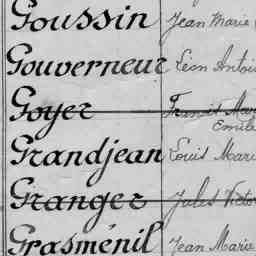 Goussin Jean Marie
Gouverneur Léon Antoi
Goyer Francis Mar
Emile
Grandjean Louis Mari
Granger Jules Victo
Grasménil Jean Marie